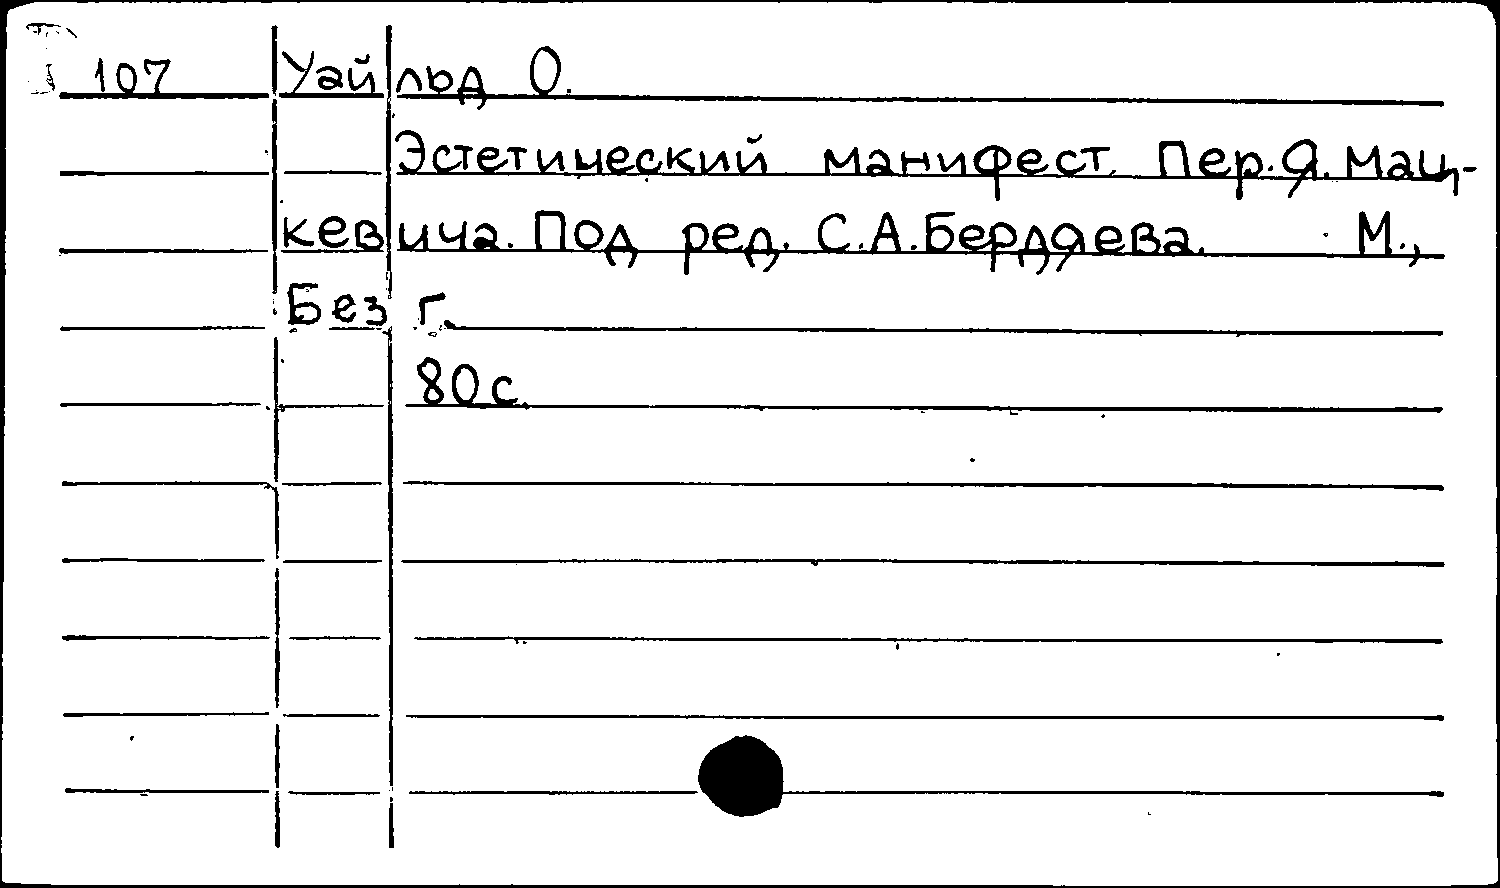 107 Уайльд О.
Эстетический манифест. Пер. Я. Мац-
кевича. Под ред. С.А. Бердяева. М.,
Без г.
80 с.